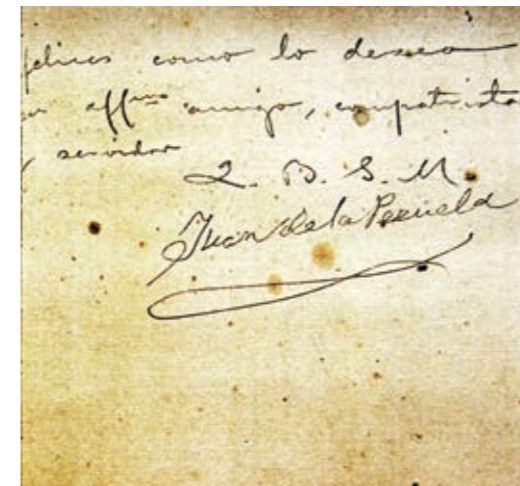 felices como lo desea
su affmo amigo, compatriota
y servidor
Q. B. S. M.
Juan de la Pezuela